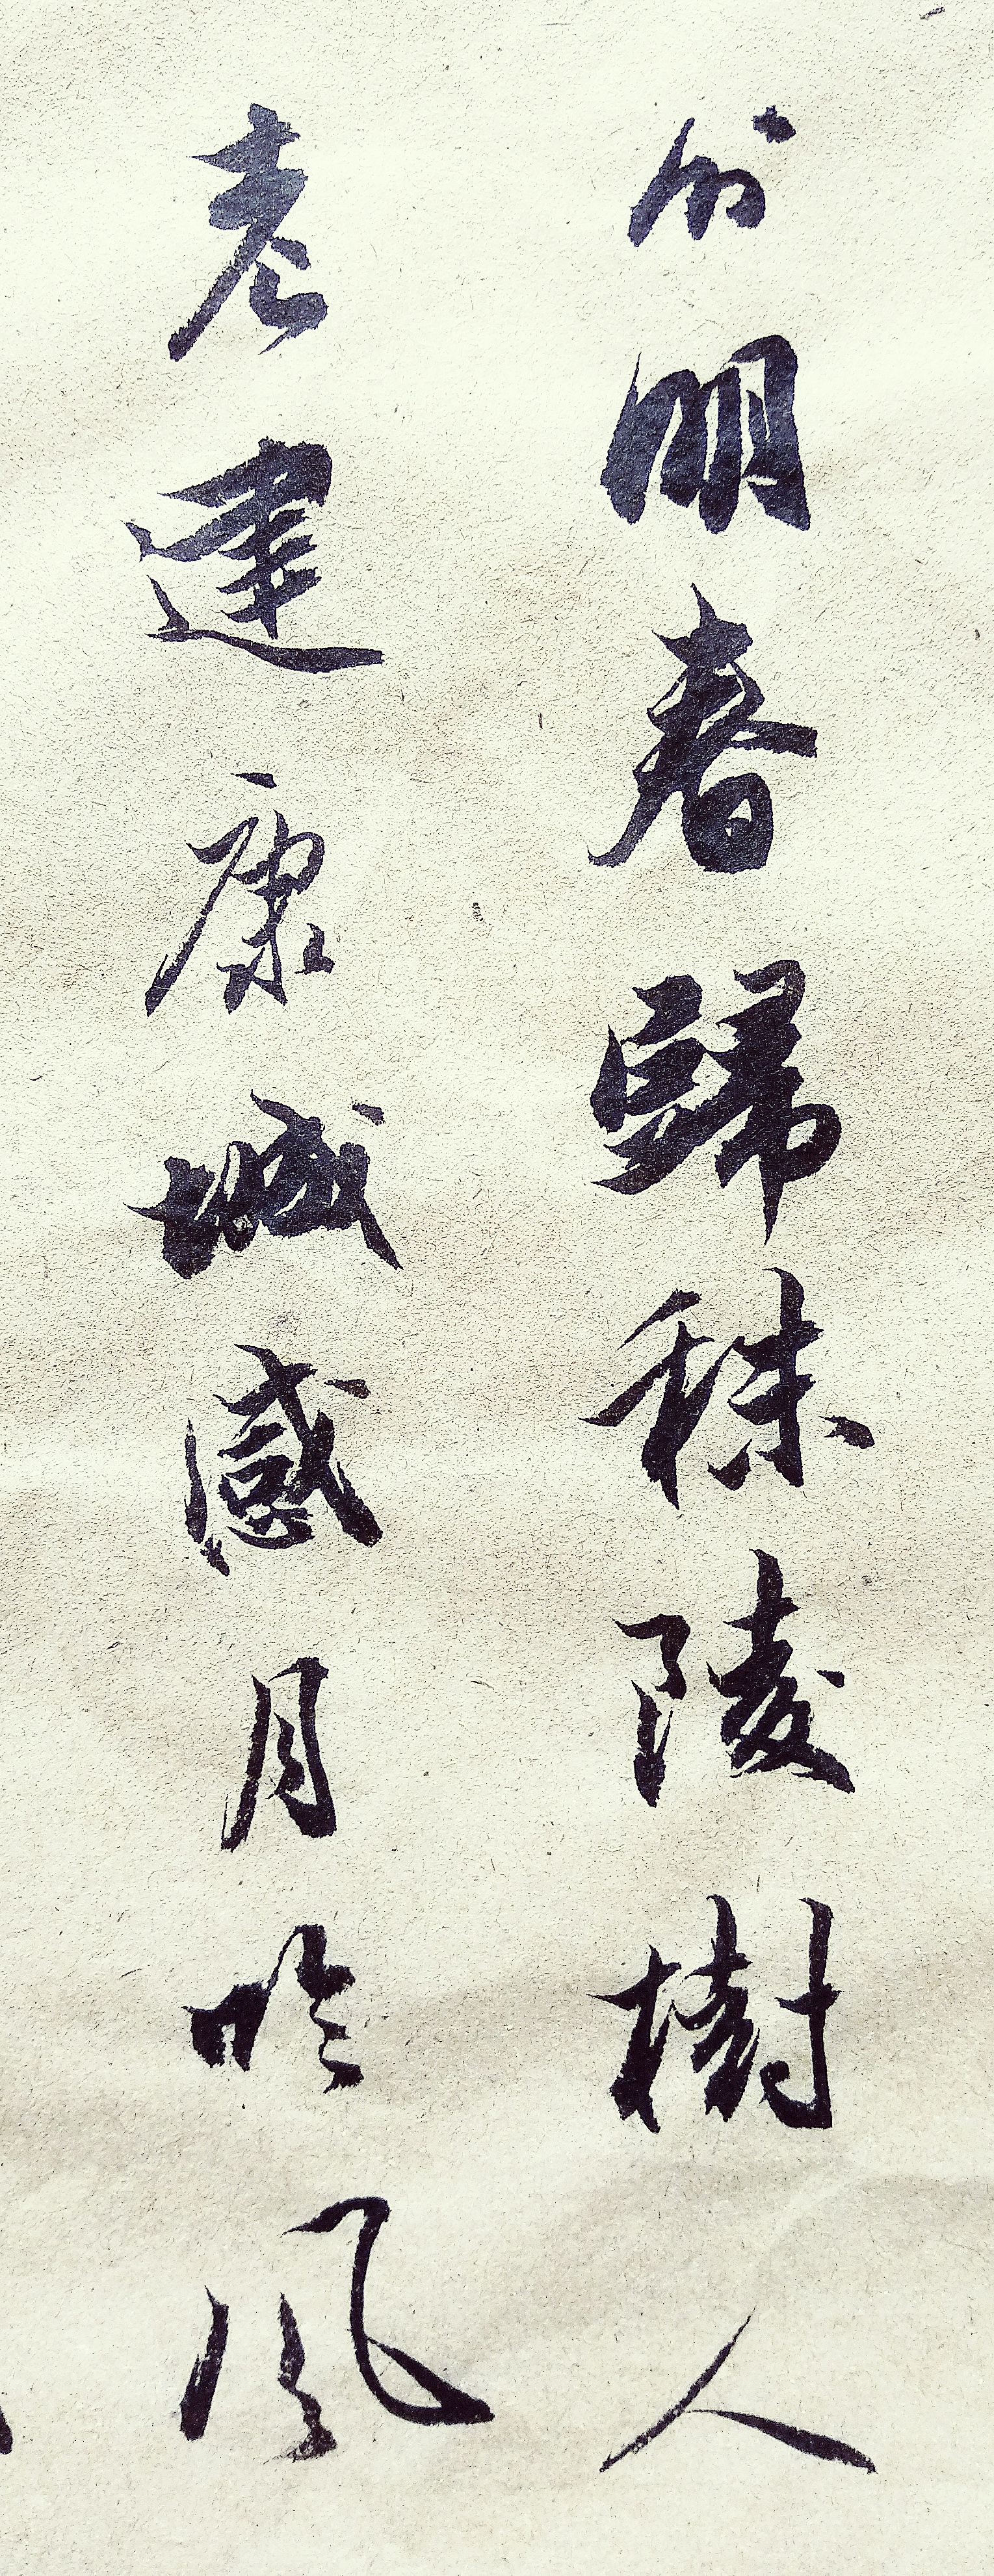 分明春歸秣陵樹人
老建康城感月吟風